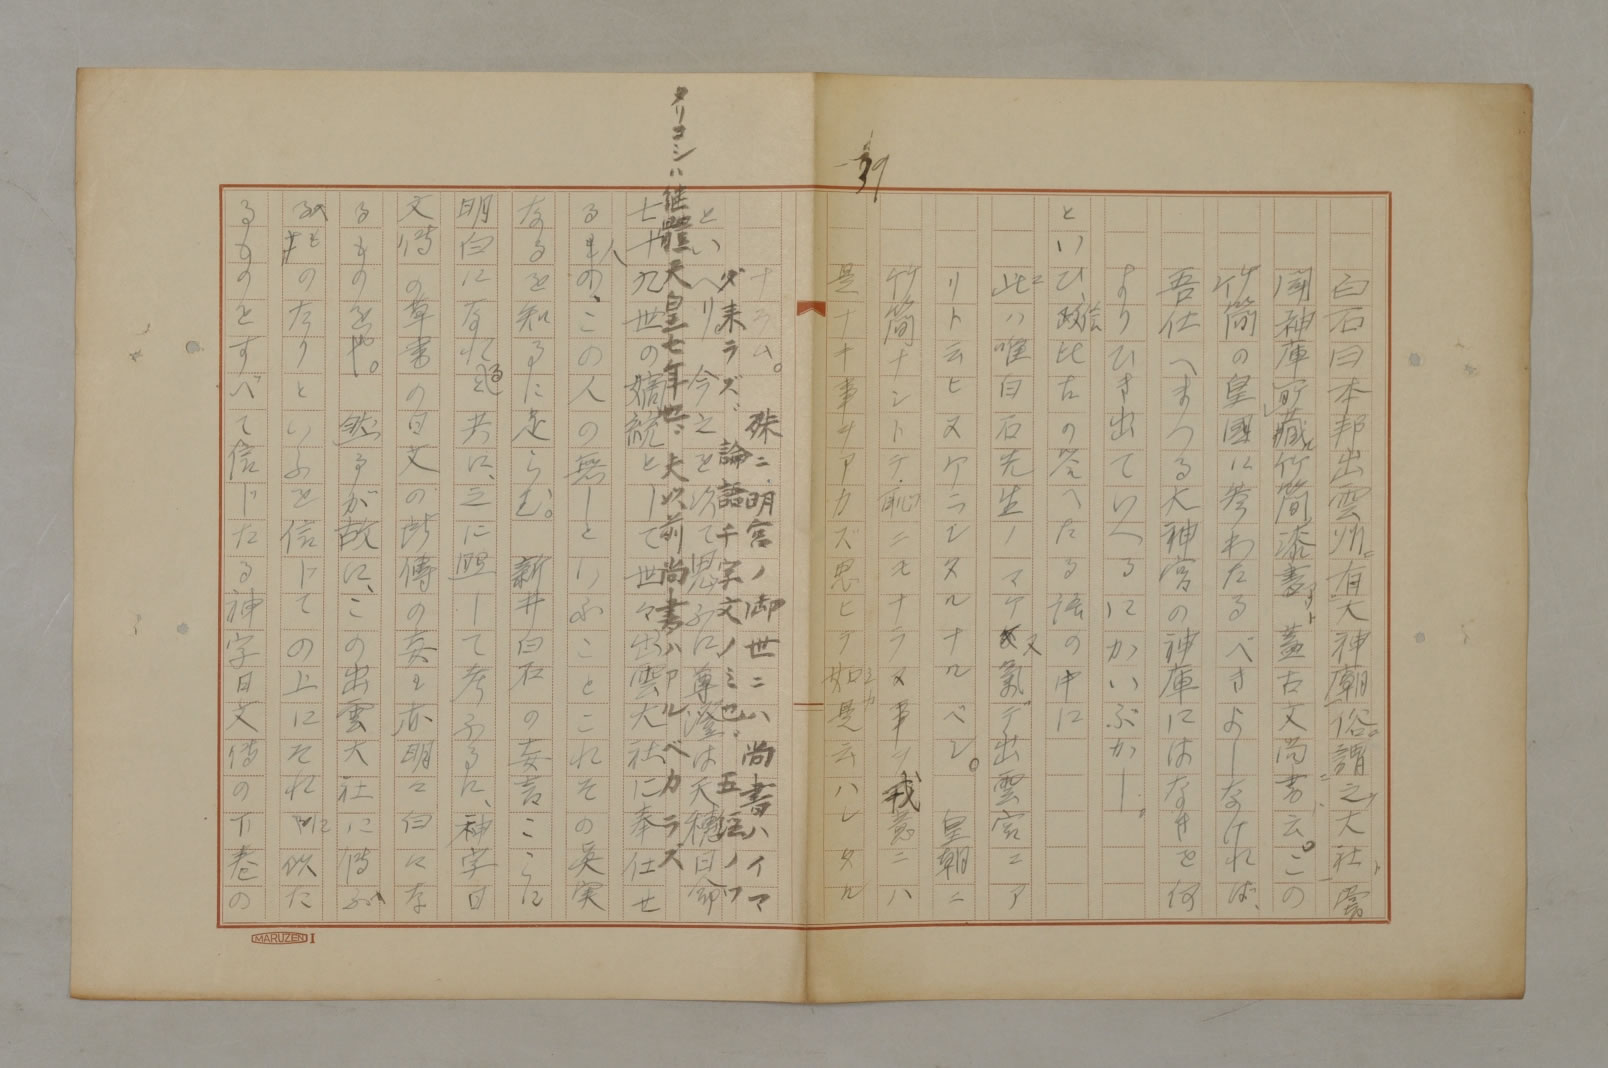 39
白石曰本邦出雲州有大神廟俗謂之大社嘗
聞神庫所藏竹簡漆書蓋古文尚書云。この
竹簡の皇國に参わたるべきよしなければ、
吾仕へまつる大神宮の神庫にはなきを何
よりひき出ていへるにかいぶかし。
といひ、政比古の答へたる語の中に
此ハ唯白石先生ノマケ又氣デ出雲宮ニア
リト云ヒヌケラレタルナルベシ。 皇朝ニ
竹簡ナシトテ恥ニモナラヌ事ヲ我意ニハ
是ナキ事ヲアカズ思ヒテ如是云ハレタル
ナラム。
殊ニ明宮ノ御世ニハ尚書ハイマ
ダ来ラズ、論語千字文ノミ也。五経ノワ
タリコシハ継體天皇七年也、夫以前尚書ハアルベカラズ
といへり。今之を以て思ふに尊澄は天穂日命
七十九世の嫡統として世々出雲大社に奉仕せ
る人、この人の無しといふことこれその真実
なるを知るに足らむ。 新井白石の妄言こゝに
明白になれる共に、之に照して考ふるに、神字日
文傳の草書の日文の所傳の妄も亦明々白々な
るものをや。 然るが故に、この出雲大社に傳ふ
るものなりといふを信じての上にそれに似た
るものをすべて信じたる神字日文傳の下巻の
MARUZEN I